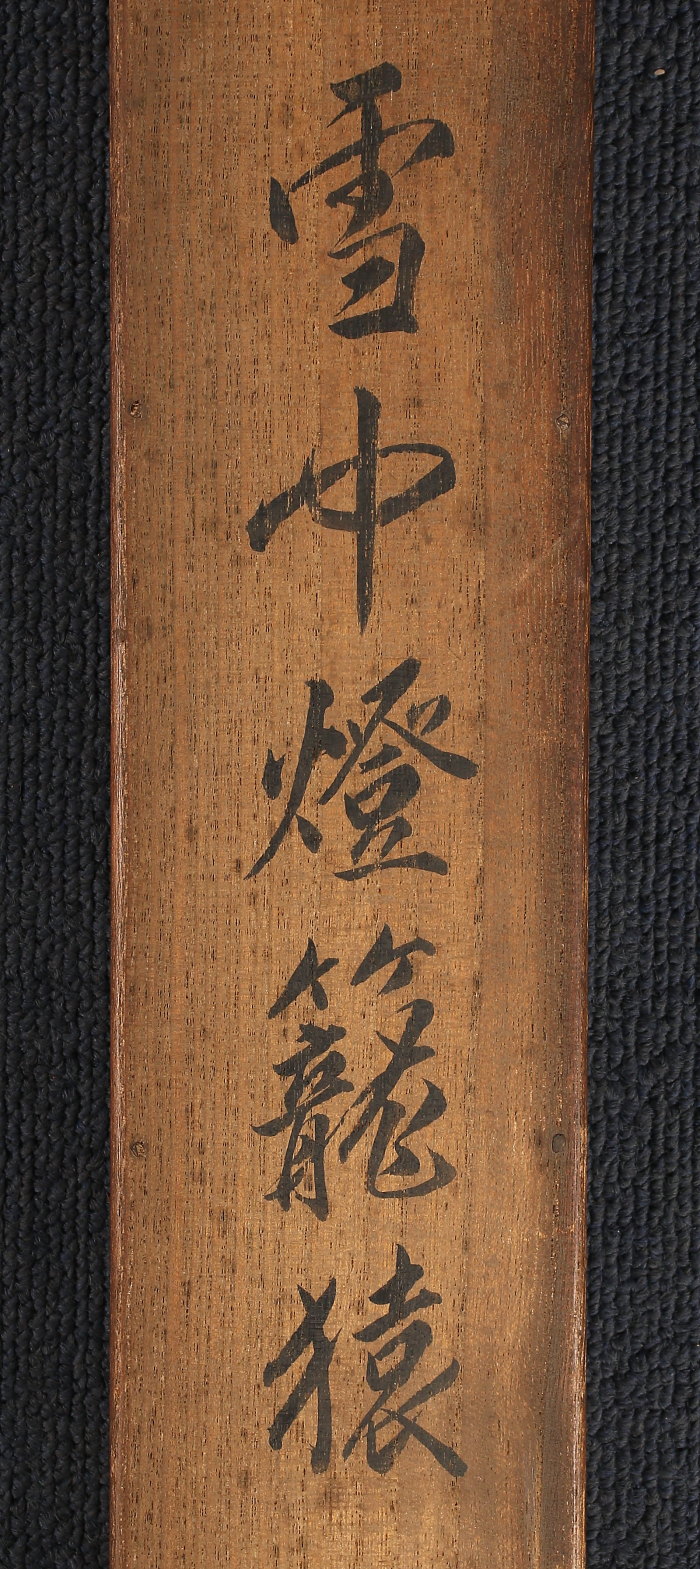 雪中燈籠猿